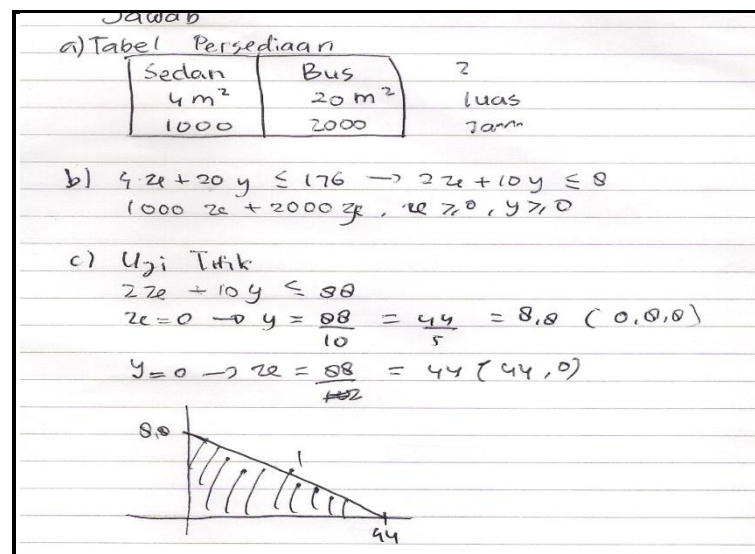 Jawab
a) Tabel Persediaan
Sedan Bus 2
4 m² 20 m² luas
1000 2000
b) 4x + 20y ≤ 176 → 2x + 10y ≤ 8
1000 x + 2000 x, x ≥ 0, y ≥ 0
c) Uji Titik
2x + 10y ≤ 88
x = 0 → y = 88/10 = 44/5 = 8,8 (0,8,8)
y = 0 → x = 88/2 = 44 (44,0)
8,8
1
44